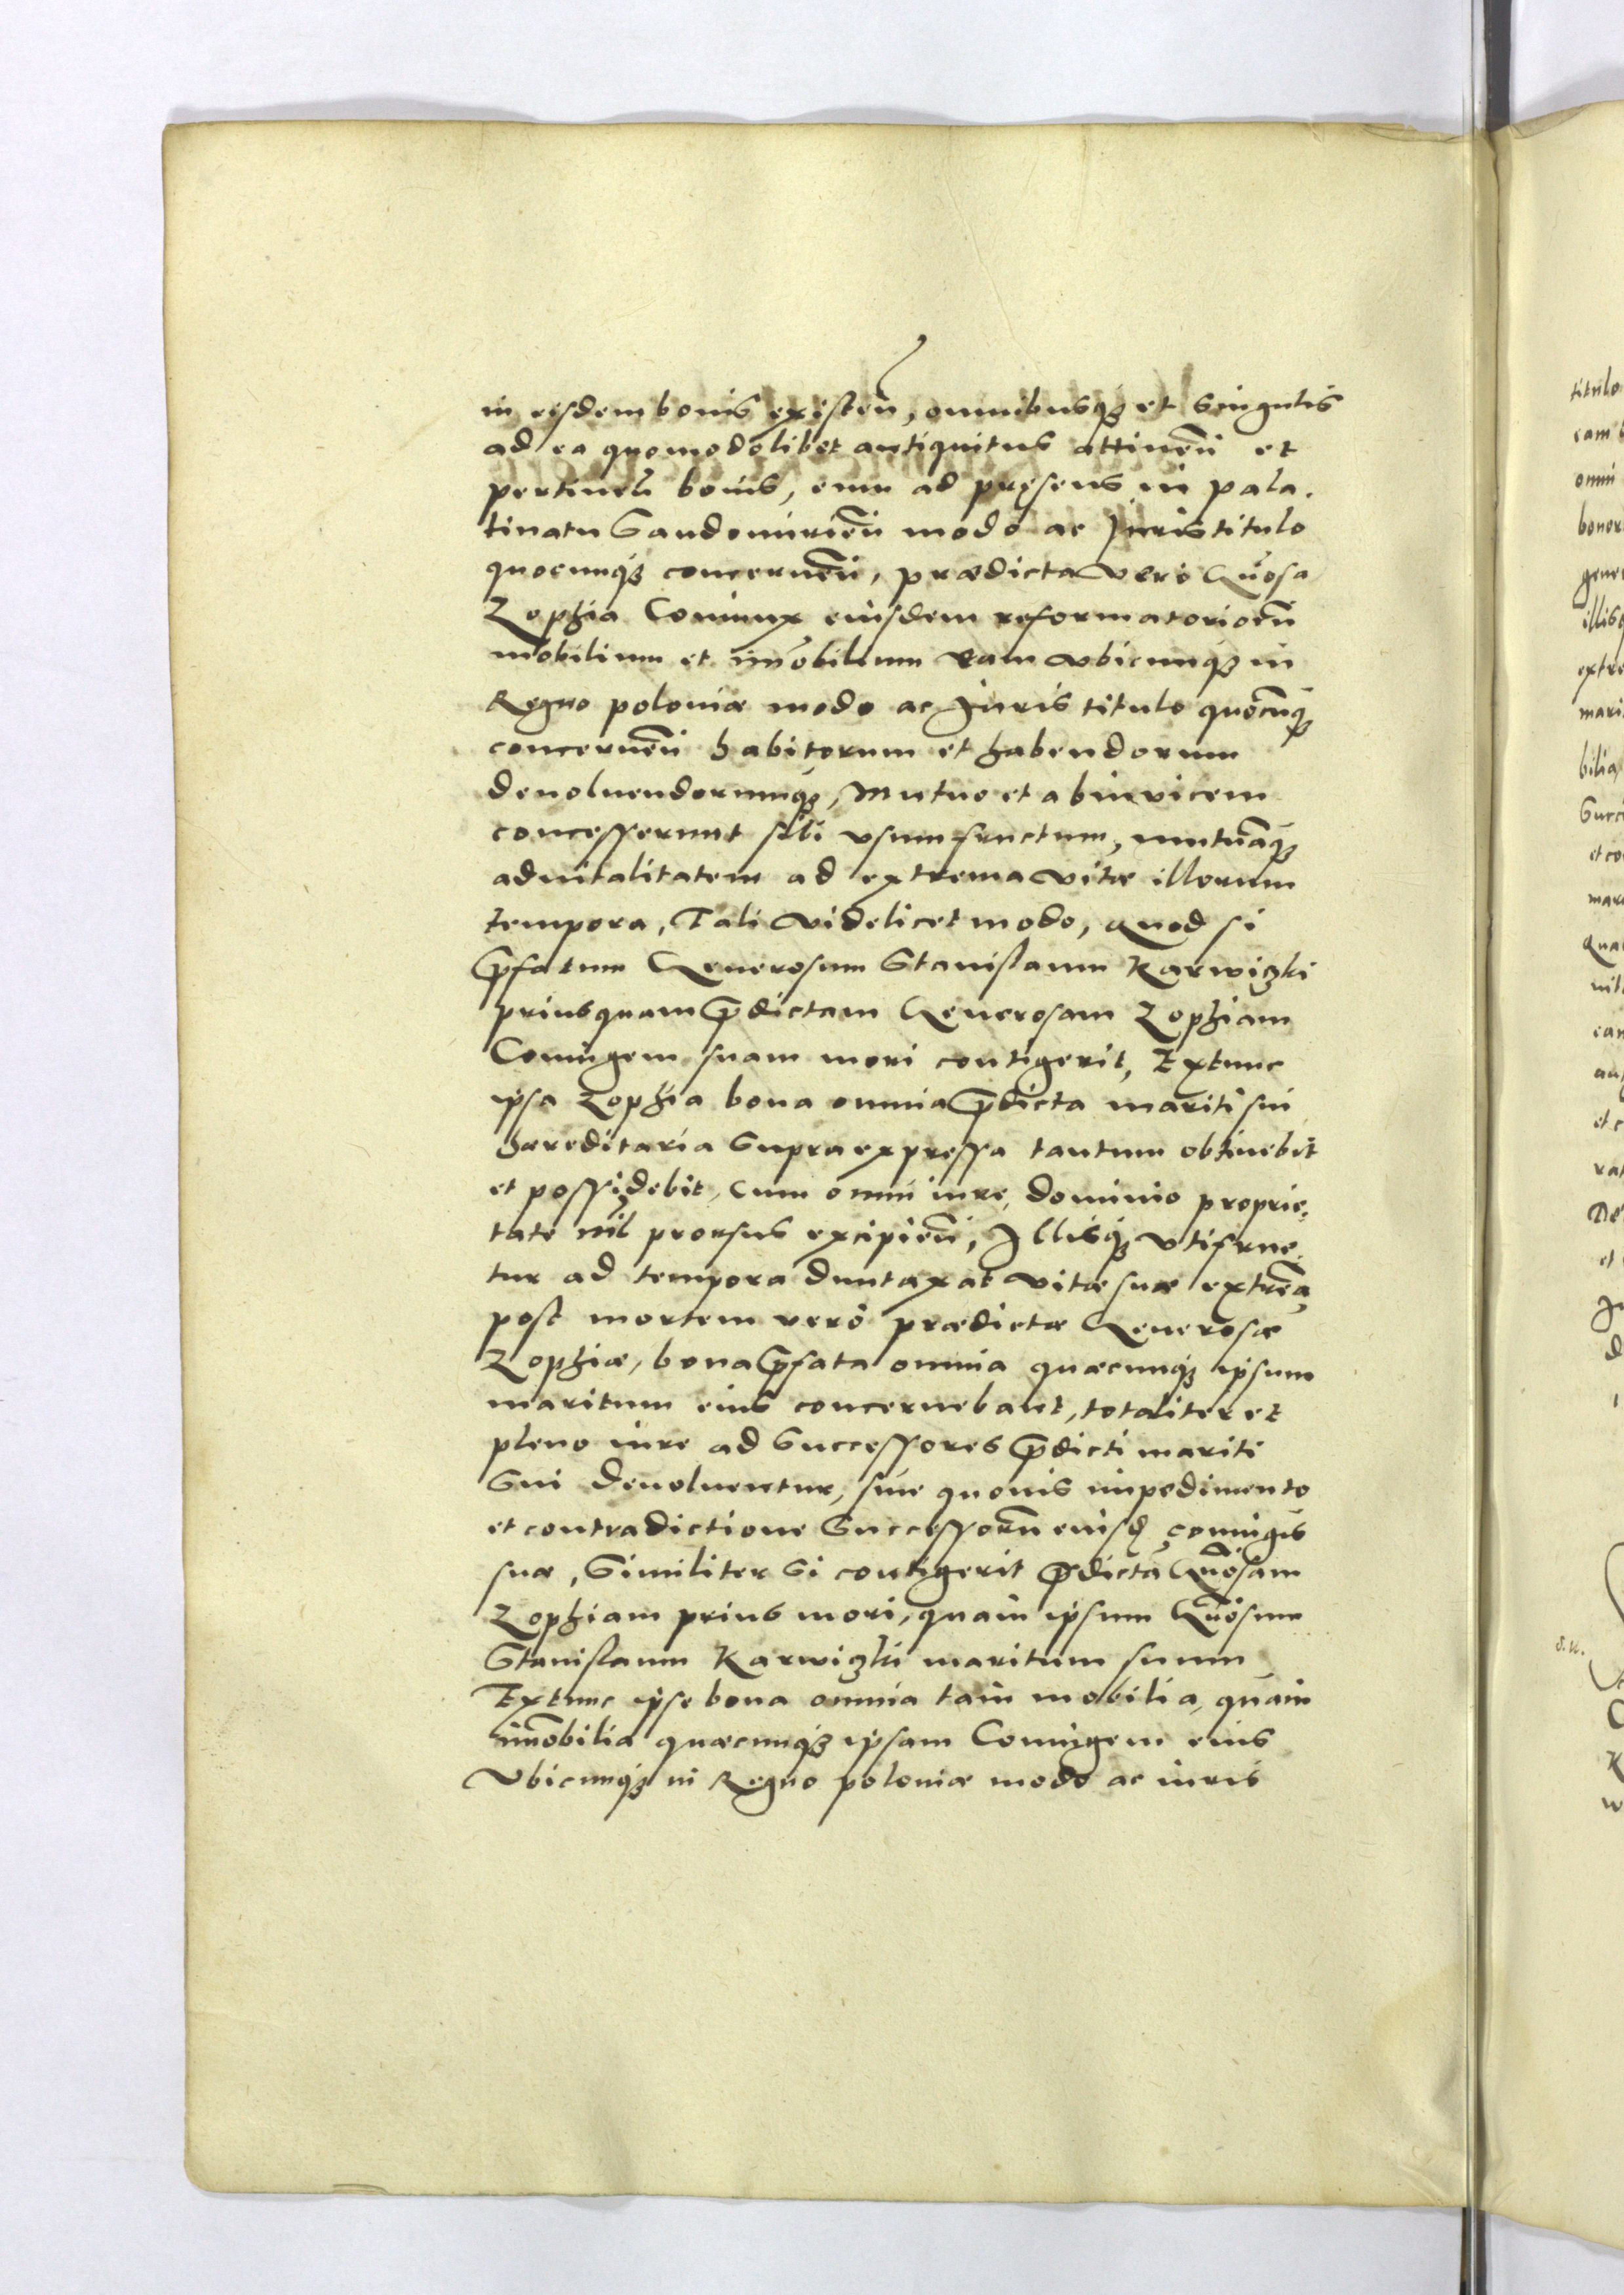 in eisdem bonis existeñ, omnibusqȝ et singulis
ad ea quomodolibet antiquitus attineñ et
pertineñ bonis, eum ad pręsens in pala-
tinatu Sandomirieñ modo ac Juris titulo
quocunqȝ concerneñ, prædicta vero Gñosa
Zophia Coniunx eiusdem reformatorioru͂
mobilium et im̃obilium eam vbicunqȝ in
Regno poloniæ modo ac Juris titulo quocu͂qȝ
concerneñ habitorum et habendorum
deuoluendorumqȝ, Mutuo et abinvicem
concesserunt sibi vsumfructum, mutuãqȝ
aduitalitatem ad extrema vitæ illorum
tempora, Tali videlicet modo, quod si
p̃fatum Generosum Stanislaum Karwiczki
priusquam p̃dictam Generosam Zophiam
Coniugem suam mori contigerit, Extunc
ipsa Zophia bona omnia p̃dicta mariti sui
hæreditaria supra expressa tantum obtinebit
et possidebit, cum omni iure, dominio proprie-
tate nil prorsus excipieñ, Illisqȝ vtifrue-
tur ad tempora duntaxat vitæ suæ extrẽa
post mortem verò prædictæ Generosæ
Zophiæ, bona p̃fata omnia quæcunqȝ ipsum
maritum eius concernebant, totaliter et
pleno iure ad Successores p̃dicti mariti
sui deuoluentur, sine quouis impedimento
et contradictione Successoru͂ eiusd coniugis
suæ, Similiter si contigerit p̃dictã Gñosam
Zophiam prius mori, quam ipsum Gñosum
Stanislaum Karwiczki maritum suum
Extunc ipse bona omnia tam mobilia, quàm
im̃obilia quæcunqȝ ipsam Coniugem eius
Vbicunqȝ in Regno poloniæ modo ac iuris